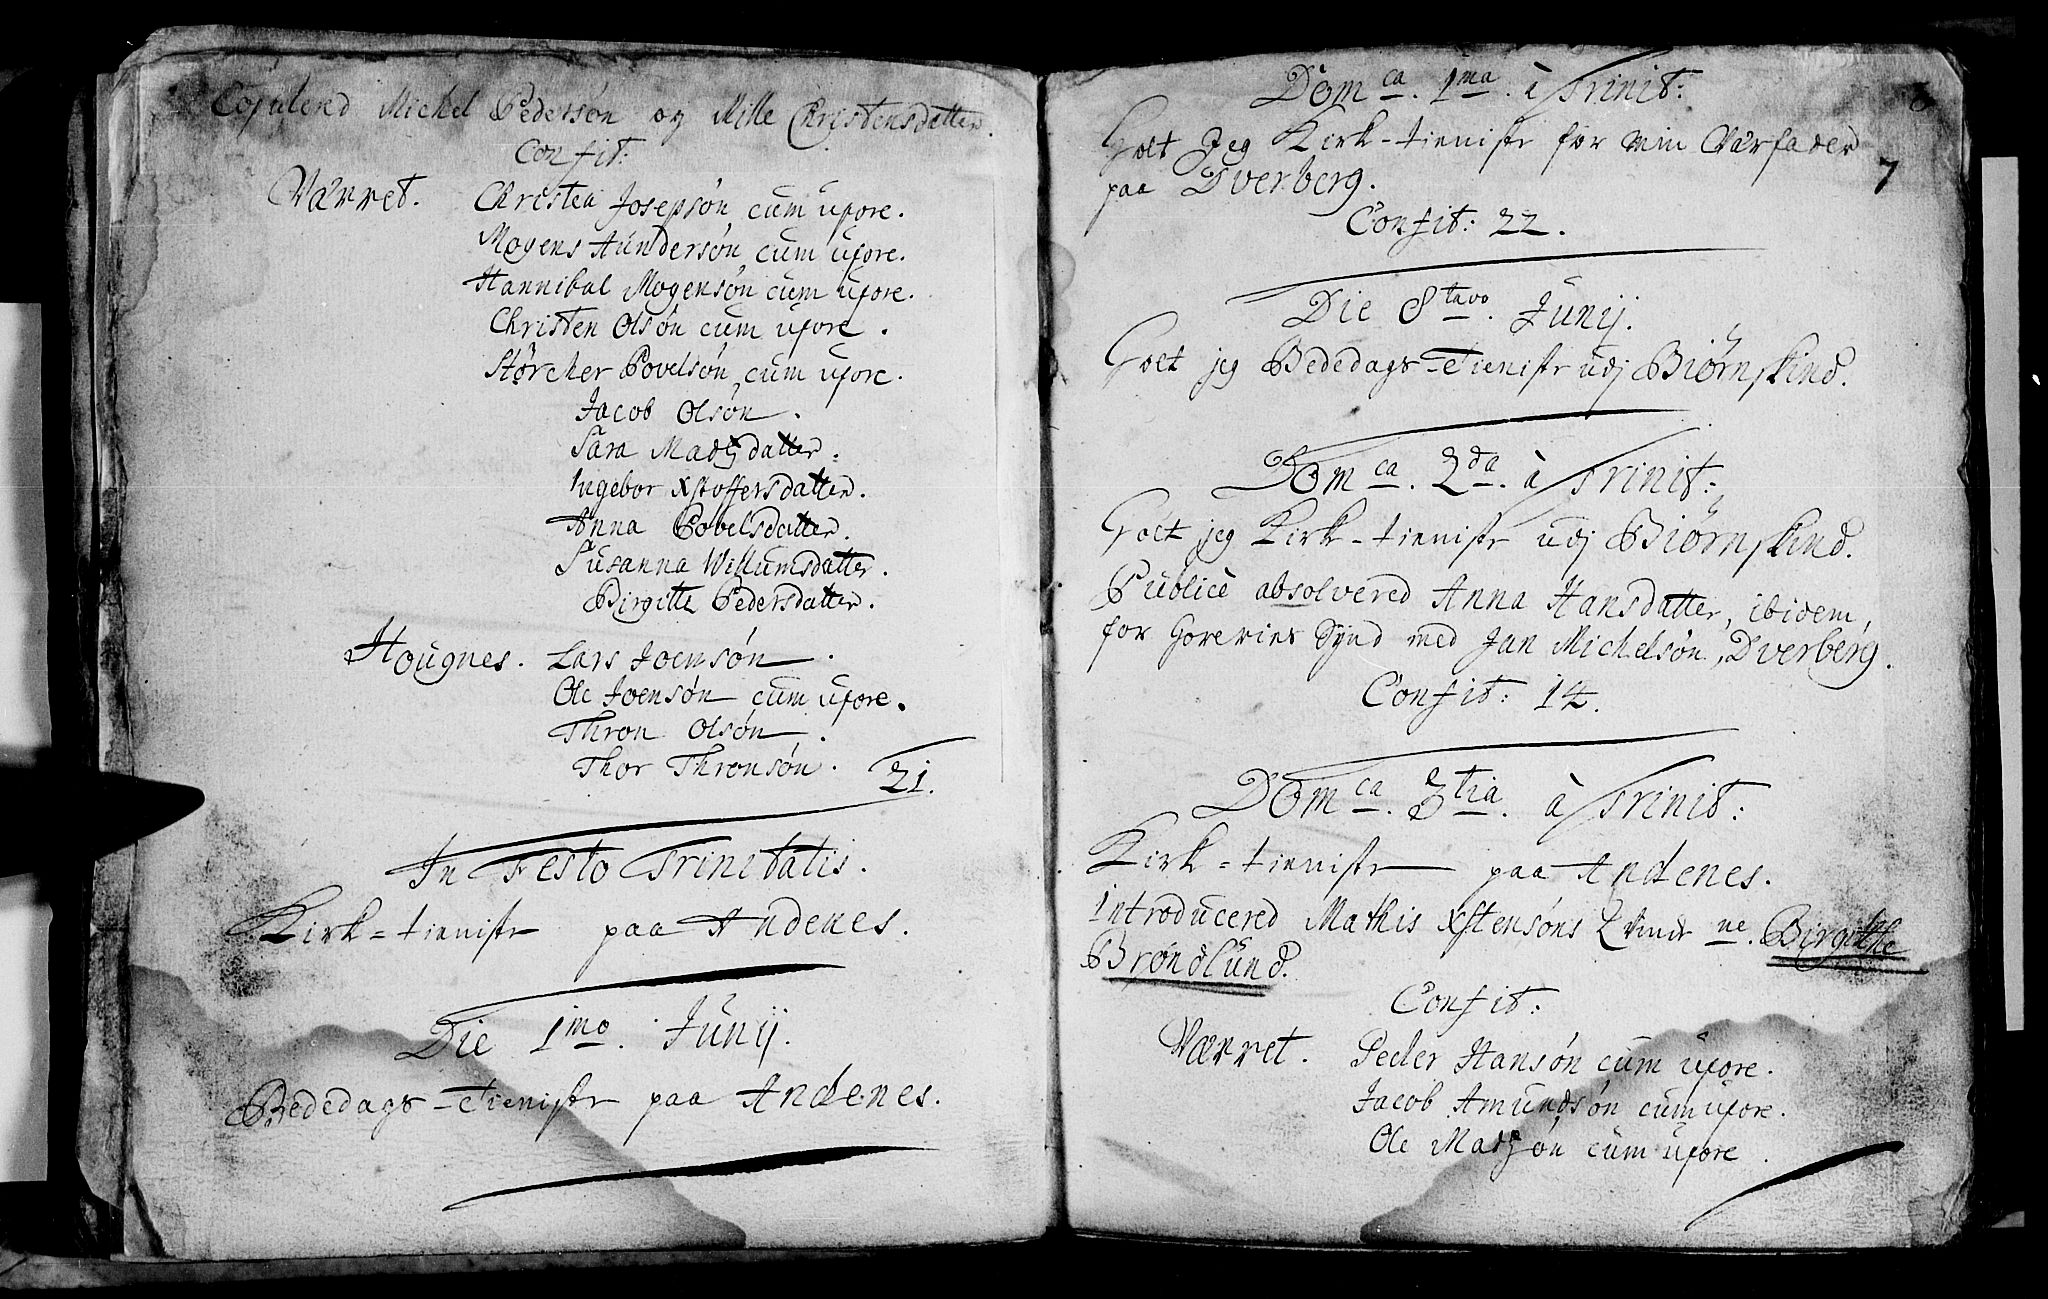 Copulered Michel Pedersøn og Mille Christensdatter.
Confit:
Værret. Christen Josepsøn cum uxore.
Mogens Aundersøn cum uxore.
Hannibal Mogensøn cum uxore.
Christen Olsøn cum uxore.
Störcher Povelsøn cum uxore.
Jacob Olsøn.
Sara Madzdatter.
Ingebor Xstoffersdatter.
Anna Povelsdatter.
Susanna Willumsdatter.
Birgitte Pedersdatter.
Hougnes. Lars Joensøn.
Ole Joensøn cum uxore.
Thron Olsøn.
Thor Thronsøn. 21.
In Festo Trinitatis.
Kirk=tieniste paa Andenes.
Die 1mo. Junij.
Bededags-Tieniste paa Andenes.
Domca. 1ma. à Trinit:
Holt Jeg Kirk-tieniste for min Værfader
7
paa Dverberg.
Confit: 22.
Die 8tavo. Junij.
Holt jeg Bededags-Tieniste udj Biørnskind.
Domca. 2da. à Trinit:
Holt jeg Kirk-tieniste udj Biørnskind.
Publicè absolvered Anna Hansdatter, ibidem,
for Horeries Synd med Jan Michelsøn, Dverberg.
Confit: 14.
Domca. 3tia. à Trinit:
Kirk=tieniste paa Andenes.
Introducered Mathis Xstensøns Qvinde ne. Birgitthe
Brøndlund.
Confit:
Værret. Peder Hansøn cum uxore.
Jacob Amundsøn cum uxore.
Ole Madzøn cum uxore.